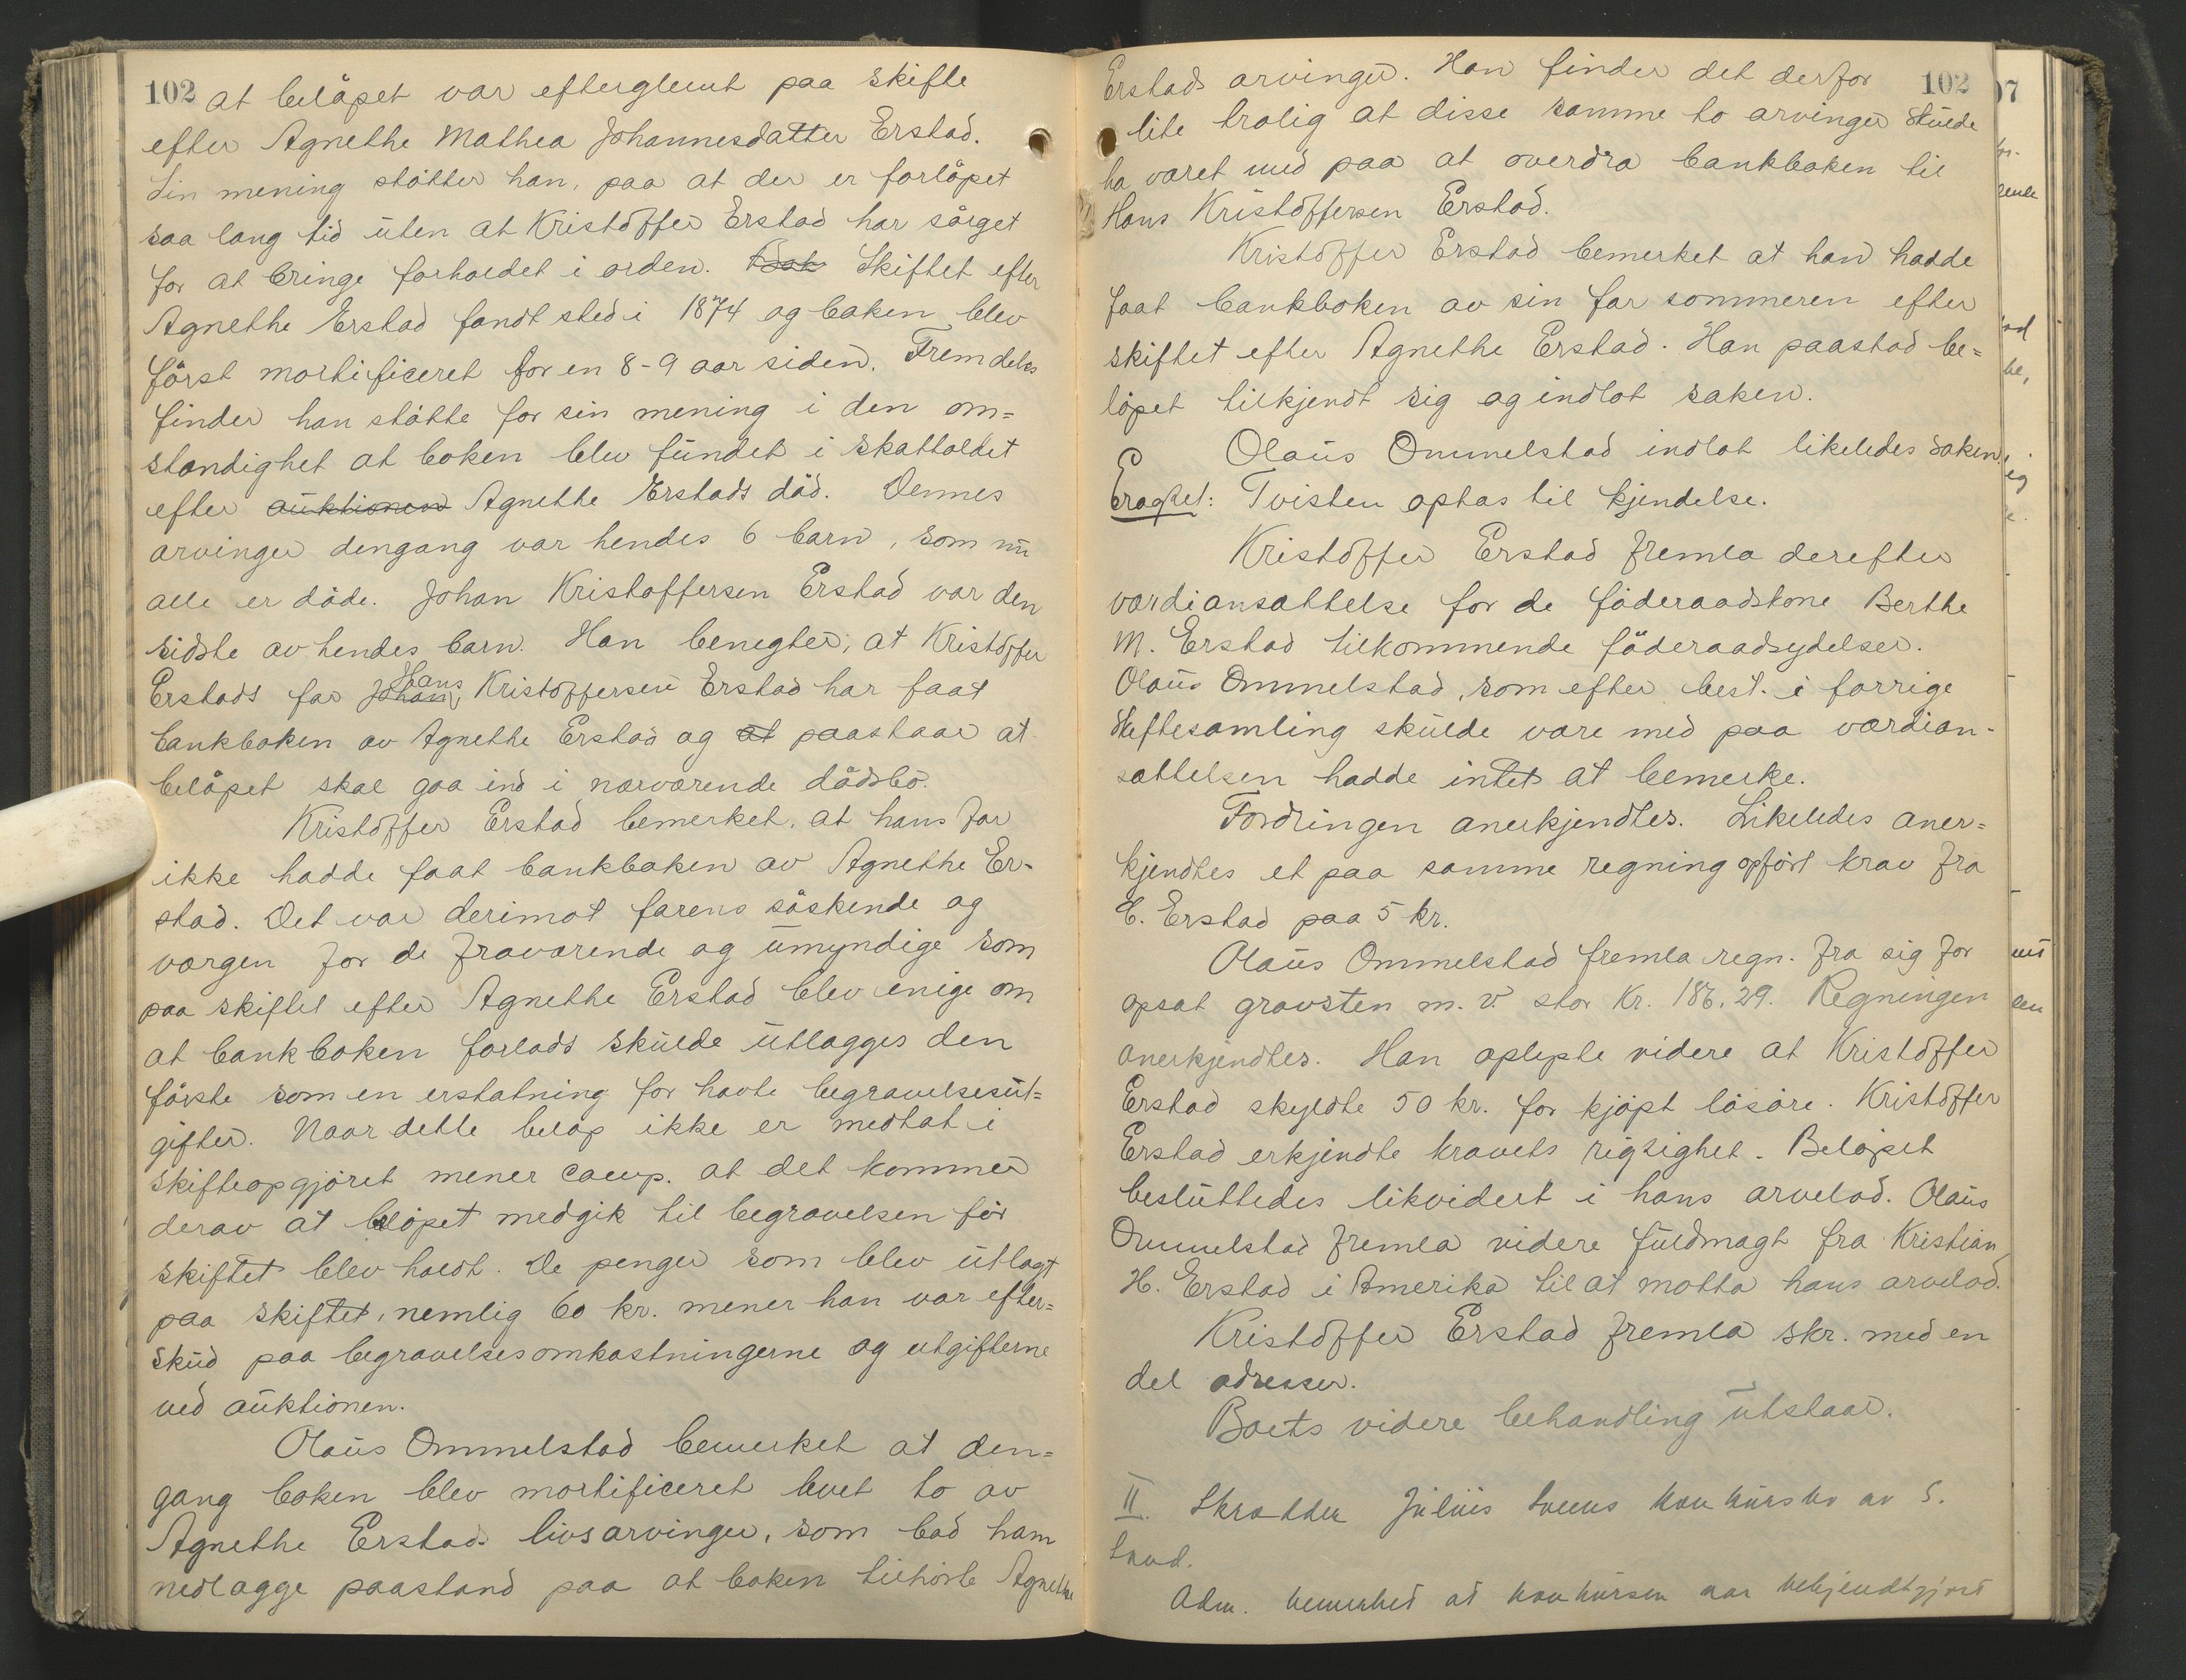 102 at beløpet var efterglemt paa skifte
efter Agnethe Mathea Johannesdatter Erstad.
Sin mening støtter han, paa at der er forløpet
saa lang tid uten at Kristoffer Erstad har sørget
for at bringe forholdet i orden. Bok Skiftet efter
Agnethe Erstad fandt sted i 1874 og boken blev
først mortificeret for en 8-9 aar siden. Fremdeles
finder han støtte for sin mening i den om=
stændighet at boken blev fundet i skattoldet
efter auktionen Agnethe Erstads død. Dennes
arvinger dengang var hendes 6 barn, som nu
alle er døde. Johan Kristoffersen Erstad var den
sidste av hendes barn. Han benegter, at Kristoffer
Erstads far Johan, Hans Kristoffersen Erstad har faat
bankboken av Agnethe Erstad og at paastaar at
beløpet skal gaa ind i nærværende dødsbo.
Kristoffer Erstad bemerket, at hans far
ikke hadde faat bankboken av Agnethe Er-
stad. Det var derimot farens søskende og
værgen for de fraværende og umyndige som
paa skiftet efter Agnethe Erstad blev enige om
at bankboken forlods skulde utlægges den
første som en erstatning for havte begravelsesut=
gifter. Naar dette beløp ikke er medtat i
skifteopgjøret mener comp. at det kommer
derav at beløpet medgik til begravelsen før
skiftet blev holdt. De penger som blev utlagt
paa skiftet, nemlig 60 kr. mener han var efter=
skud paa begravelsesomkostningerne og utgifterne
ved auktionen.
Olaus Ommelstad bemerket at den=
gang boken blev mortificeret levet to av
Agnethe Erstads livsarvinger, som bad ham
nedlægge paastand paa at boken tilhørte Agnethe
Erstads arvinger. Han finder det derfor 102
lite trolig at disse samme to arvinger skulde
ha været med paa at overdra bankboken til
Hans Kristoffersen Erstad.
Kristoffer Erstad bemerket at han hadde
faat bankboken av sin far sommeren efter
skiftet efter Agnethe Erstad. Han paastod be=
løpet tilkjendt sig og indlot saken.
Olaus Ommelstad indlot likeledes saken.
Eragtet: Tvisten optas til kjendelse.
Kristoffer Erstad fremla derefter
værdiansættelse for de føderaadskone Berthe
M. Erstad tilkommende føderaadsydelser.
Olaus Ommelstad, som efter best. i forrige
skiftesamling skulde være med paa værdian-
sættelsen hadde intet at bemerke.
Fordringen anerkjendtes. Likeledes aner=
kjendtes et paa samme regning opført krav fra
C. Erstad paa 5 kr.
Olaus Ommelstad fremla regn. fra sig for
opsat gravsten m. v. stor kr. 186.29. Regningen
anerkjendtes. Han oplyste videre at Kristoffer
Erstad skyldte 50 kr. for kjøpt løsøre. Kristoffer
Erstad erkjendte kravets rigtighet. Beløpet
besluttedes likvidert i hans arvelod. Olaus
Ommelstad fremla videre fuldmagt fra Kristian
H. Erstad i Amerika til at motta hans arvelod.
Kristoffer Erstad fremla skr. med en
del adresser.
Boets videre behandling utstaar.
II. Skrædder Julius konkursbo av S.
Land.
Adm. bemerket at konkursen var bekjendtgjort